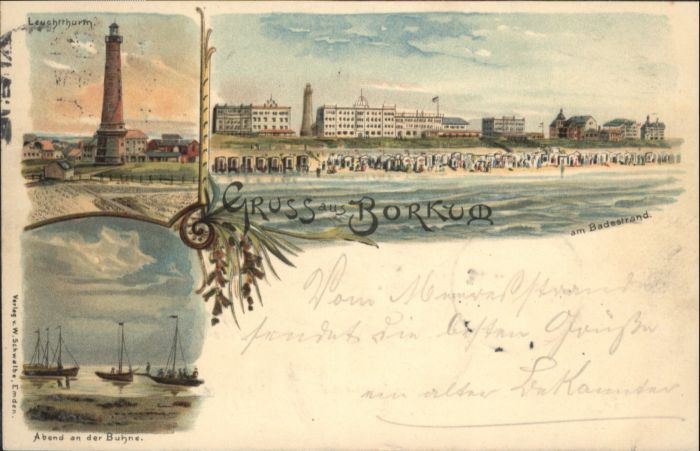 Leuchtthurm.
GRUSS aus BORKUM
am Badestrand.
Vom Meeresstrande
sendet die besten Grüße
ein alter Bekannter
Abend an der Buhne.
Verlag v. W. Schwalbe, Emden.